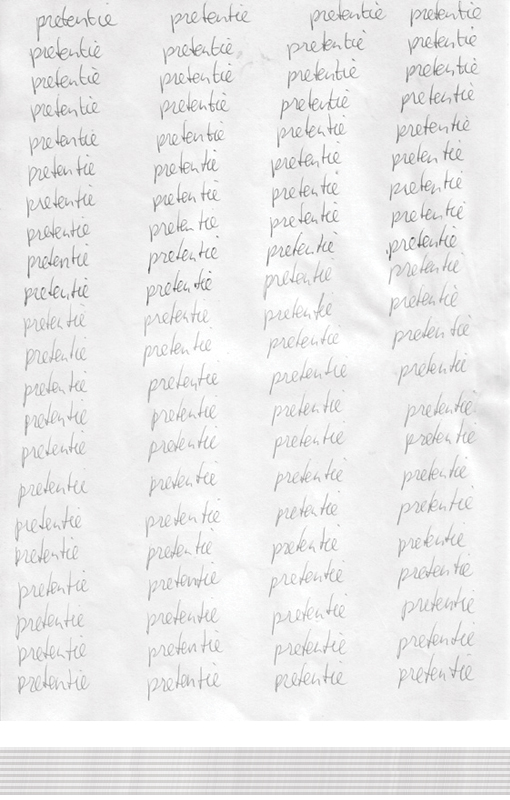 pretentie pretentie pretentie pretentie
pretentie pretentie pretentie pretentie
pretentie pretentie pretentie pretentie
pretentie pretentie pretentie pretentie
pretentie pretentie pretentie pretentie
pretentie pretentie pretentie pretentie
pretentie pretentie pretentie pretentie
pretentie pretentie pretentie pretentie
pretentie pretentie pretentie pretentie
pretentie pretentie pretentie pretentie
pretentie pretentie pretentie pretentie
pretentie pretentie pretentie pretentie
pretentie pretentie pretentie pretentie
pretentie pretentie pretentie pretentie
pretentie pretentie pretentie pretentie
pretentie pretentie pretentie pretentie
pretentie pretentie pretentie pretentie
pretentie pretentie pretentie pretentie
pretentie pretentie pretentie pretentie
pretentie pretentie pretentie pretentie
pretentie pretentie pretentie pretentie
pretentie pretentie pretentie pretentie